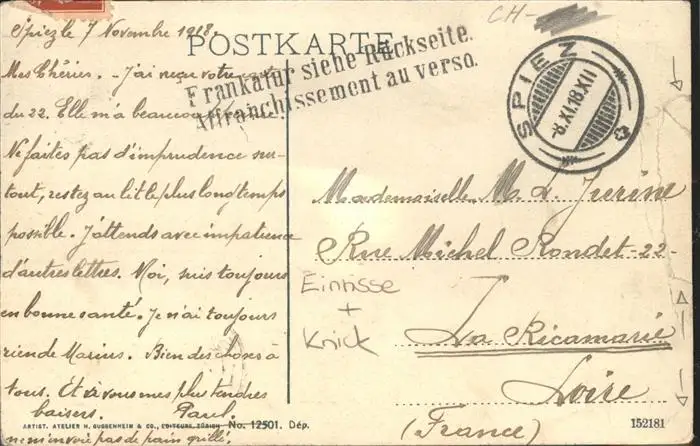 CH-
Spiez le 7 Novembre 1918.
POSTKARTE
Frankatur siehe Rückseite.
Affranchissement au verso.
SPIEZ
-8.XI.18.XII
Mes Chéries. - J'ai reçu votre
du 22. Elle m'a beaucoup
Ne faites pas d'imprudence sur-
tout, restez au lit le plus longtemps
possible. J'attends avec impatience
d'autres lettres. Moi, suis toujours
en bonne santé. Je n'ai toujours
rien de Marius. Bien des choses à
tous. Et à vous mes plus tendres
baisers. Paul.
ne m'envoie pas de pain grillé.
Mademoiselle M. L. Jurine
Rue Michel Rondet-22-
La Ricamarie
Loire
(France)
Einrisse
+
Knick
ARTIST. ATELIER H. GUGGENHEIM & CO., EDITEURS, ZÜRICH No. 12501. Dép.
152181